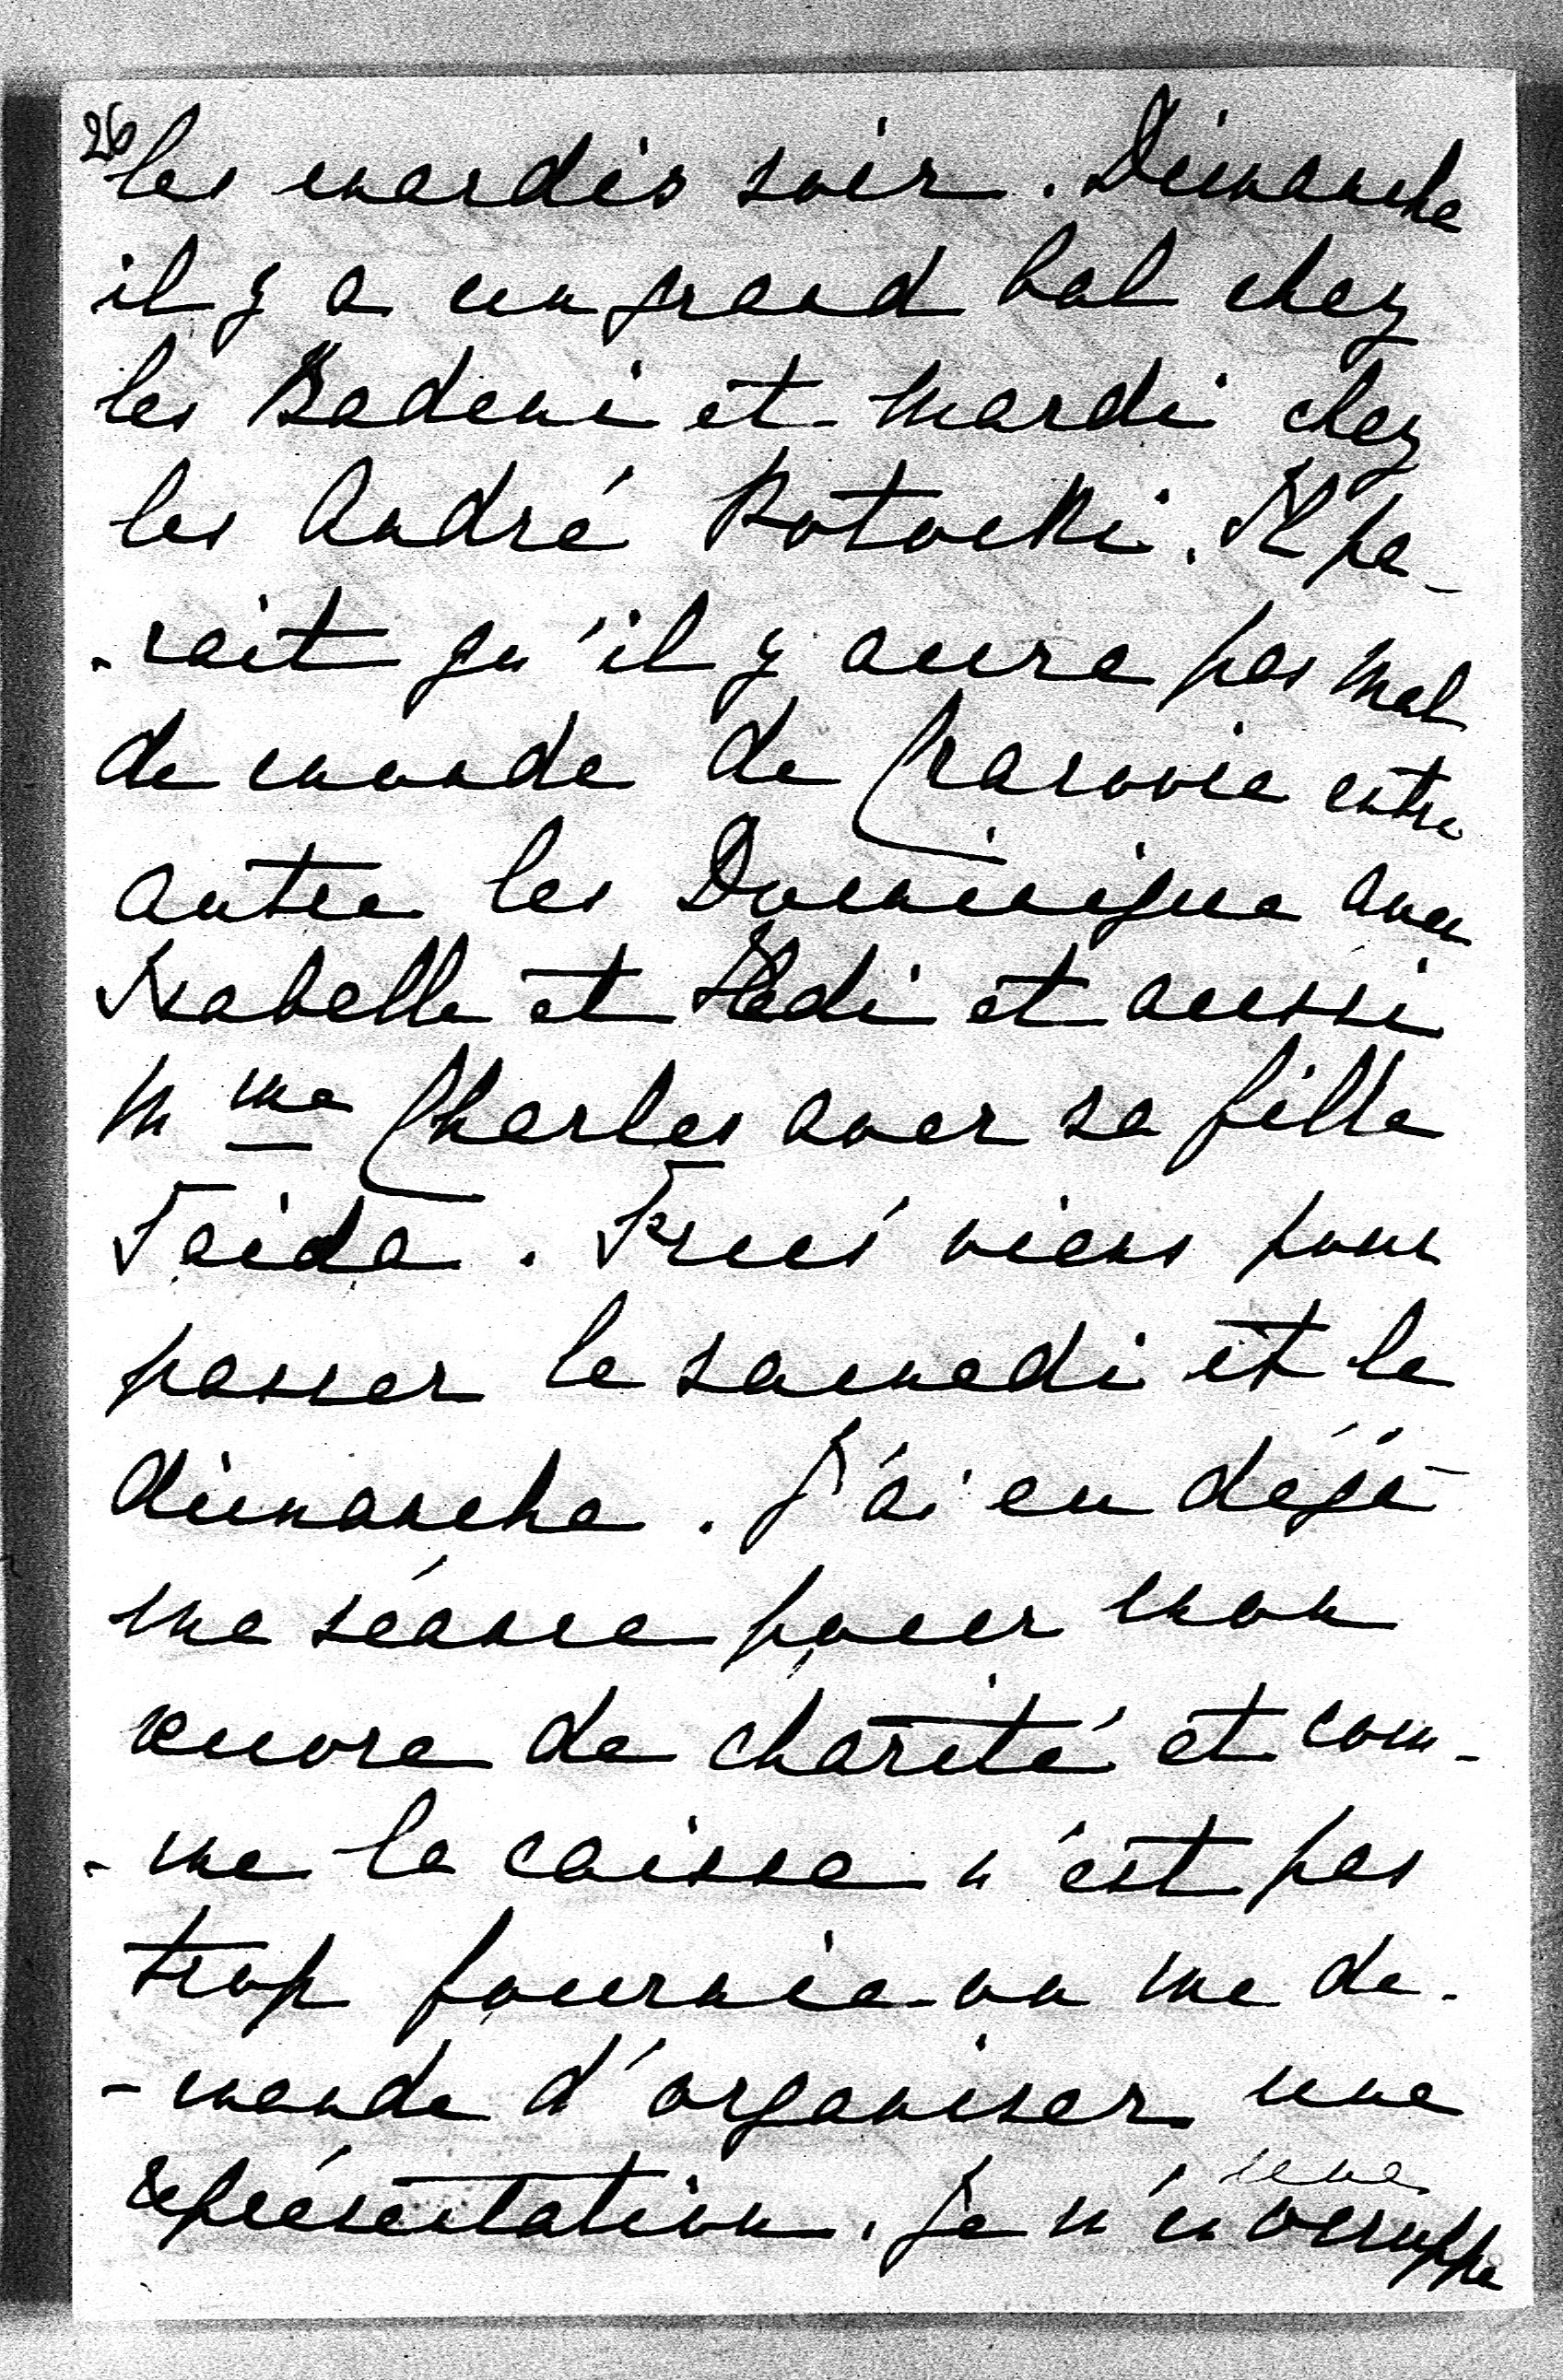 26
les mardis soir. Dimanche
il y a un grand bal chez
les Badeni et mardi chez
les André Potocki. Il pa-
-rait qu'il y aura pas mal
de monde de Cracovie entre
autre les Dominique avec
Isabelle et Hedi et aussi
Mme Charles avec sa fille
Taida. viens pour
passer le samedi et le
dimanche. J'ai eu déjà
une séance pour mon
œuvre de charité et com-
-me la caisse n'est pas
trop fournie on me de-
-mande d'organiser une
représentation. Je m'en occuppe